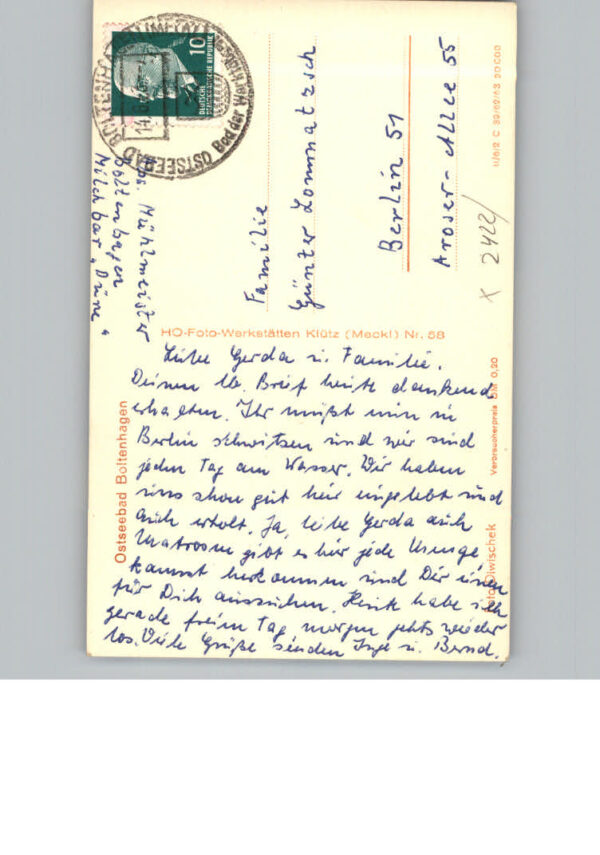 OSTSEEBAD BOLTENHAGEN
Bad der Werktätigen
10
DEUTSCHE
DEMOKRATISCHE REPUBLIK
Abs. Mühlmeister
Boltenhagen
Milchbar "Düne"
Familie
Günter Lommatzsch
Berlin 51
Aroser-Allee 55
II/6/2 C 39/62/63 20000
X 2422/
HO-Foto-Werkstätten Klütz (Meckl) Nr. 58
Ostseebad Boltenhagen
Verbraucherpreis DM 0,20
Foto Diwischek
Liebe Gerda u. Familie.
Deinen lb. Brief heute dankend
erhalten. Ihr müßt nun in
Berlin schwitzen und wir sind
jeden Tag am Wasser. Wir haben
uns schon gut hier eingelebt und
auch erholt. Ja, liebe Gerda auch
Matrosen gibt es hier jede Menge
kannst herkommen und Dir einen
für Dich aussuchen. Heute habe ich
gerade freien Tag morgen gehts wieder
los. Viele Grüße senden Inge u. Bernd.